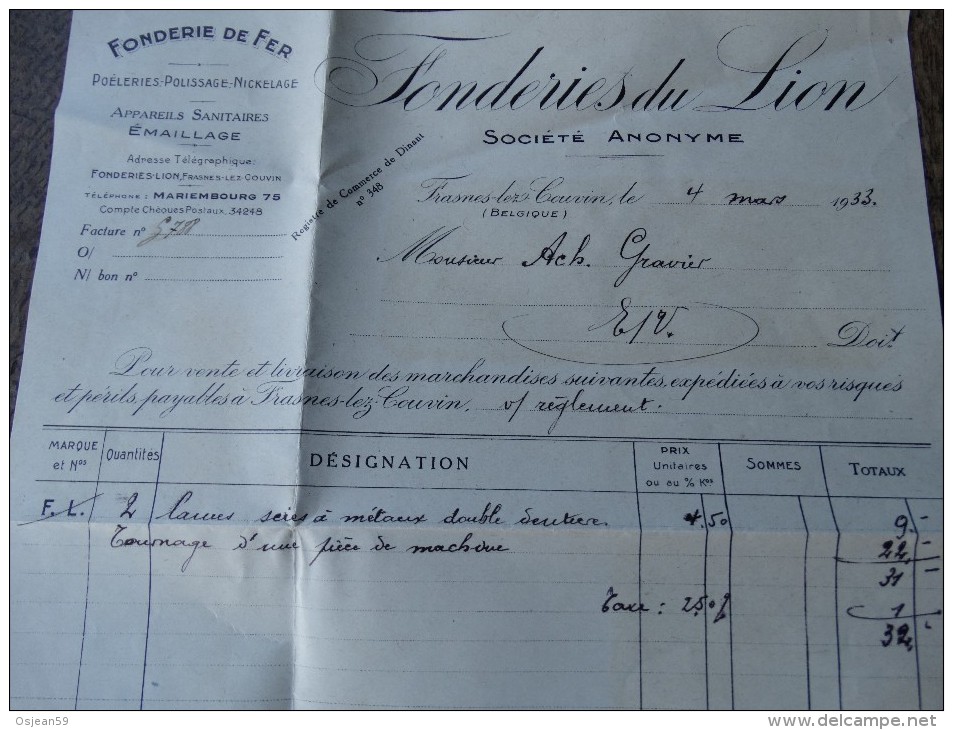 FONDERIE DE FER
POÊLERIES-POLISSAGE-NICKELAGE
APPAREILS SANITAIRES
ÉMAILLAGE
Adresse Télégraphique:
FONDERIES-LION, FRASNES-LEZ-COUVIN
TÉLÉPHONE : MARIEMBOURG 75
Compte Chèques Postaux, 34248
Facture n°
O/
N/ bon n°
Registre de Commerce de Dinant
n° 348
Fonderies du Lion
SOCIÉTÉ ANONYME
Frasnes-lez-Couvin, le 4 mars 1933.
(BELGIQUE)
Monsieur Ach. Gravier
E/V.
Doit
Pour vente et livraison des marchandises suivantes, expédiées à vos risques
et périls, payables à Frasnes-lez-Couvin, v/ règlement.
MARQUE et Nos Quantités DÉSIGNATION PRIX Unitaires ou au % Kos SOMMES TOTAUX
F. L. 2 lames scies à métaux double denture 4.50 9.-
Tournage d'une pièce de machine 22,-
31 -
Taxe : 2.50% 1
32,-
Osjean59
www.delcampe.net